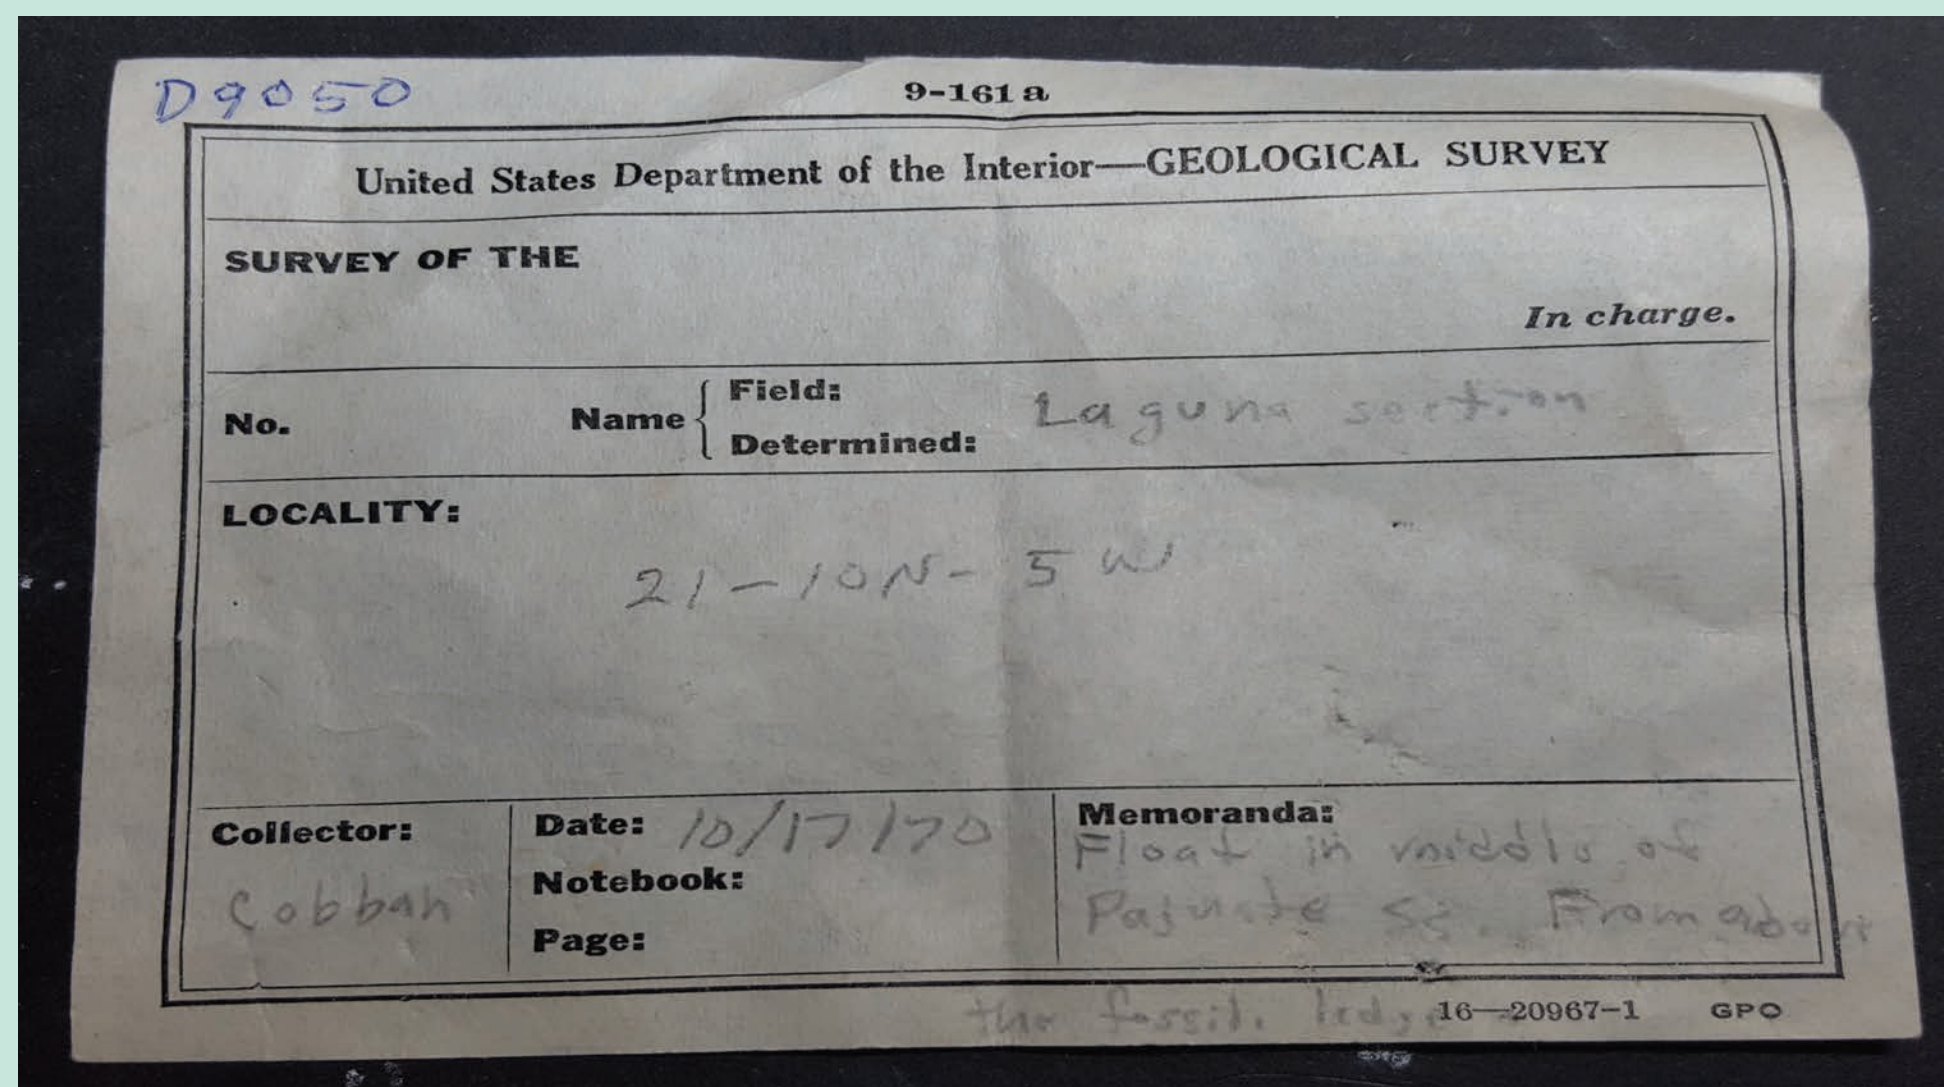 D9050
9-161 a
United States Department of the Interior—GEOLOGICAL SURVEY
SURVEY OF THE
In charge.
No. Name { Field:
Determined:
Laguna section
LOCALITY:
21-10N-5W
Collector:
Cobban
Date: 10/17/70
Notebook:
Page:
Memoranda:
Float in middle of
Pajuate ss. From about
the fossil. ledge
16—20967-1 GPO